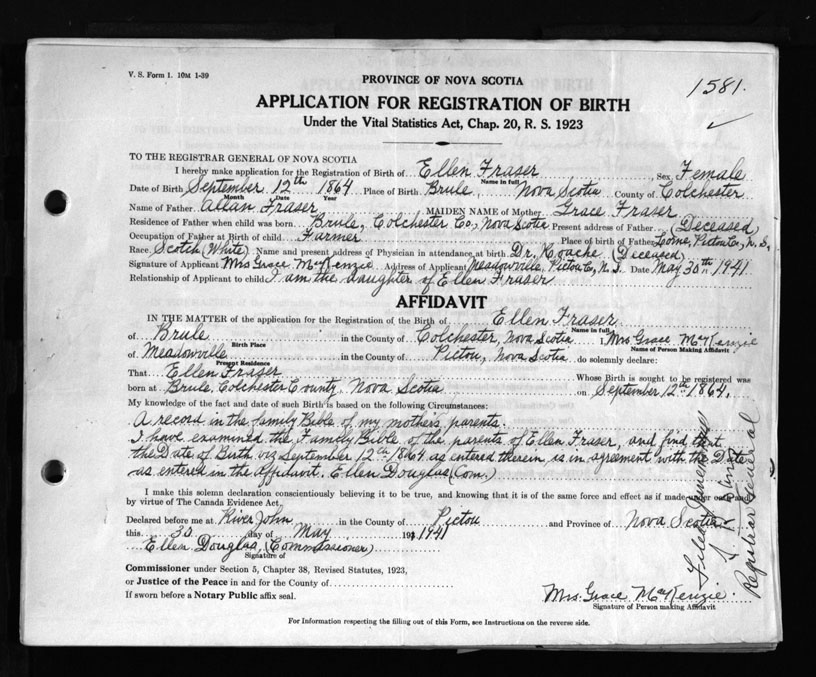 V. S. Form 1. 10M 1-39
PROVINCE OF NOVA SCOTIA
1581.
APPLICATION FOR REGISTRATION OF BIRTH
Under the Vital Statistics Act, Chap. 20, R. S. 1923
TO THE REGISTRAR GENERAL OF NOVA SCOTIA
I hereby make application for the Registration of Birth of Ellen Fraser, Sex Female
Name in full
Date of Birth September 12th 1864 Place of Birth Brule, Nova Scotia County of Colchester
Month Date Year
Name of Father Allan Fraser MAIDEN NAME of Mother Grace Fraser
Residence of Father when child was born Brule, Colchester Co, Nova Scotia Present address of Father (Deceased)
Occupation of Father at Birth of child Farmer Place of birth of Father Lorne, Pictou Co, N. S.
Race Scotch (White) Name and present address of Physician in attendance at birth Dr. Roache (Deceased)
Signature of Applicant Mrs Grace MacKenzie Address of Applicant Meadowville, Pictou Co, N. S. Date May 30th 1941
Relationship of Applicant to child I am the daughter of Ellen Fraser
AFFIDAVIT
IN THE MATTER of the application for the Registration of the Birth of Ellen Fraser
Name in full
of Brule in the County of Colchester, Nova Scotia I Mrs Grace MacKenzie
Birth Place Name of Person Making Affidavit
of Meadowville in the County of Pictou, Nova Scotia do solemnly declare:
Present Residence
That Ellen Fraser Whose Birth is sought to be registered was
born at Brule, Colchester County, Nova Scotia on September 12th 1864.
My knowledge of the fact and date of such Birth is based on the following Circumstances:
A record in the family Bible of my mother's parents.
I have examined the Family Bible of the parents of Ellen Fraser, and find that
the Date of Birth viz September 12th 1864 as entered therein, is in agreement with the Date
as entered in the Affidavit. Ellen Douglas (Com.)
I make this solemn declaration conscientiously believing it to be true, and knowing that it is of the same force and effect as if made under oath and
by virtue of The Canada Evidence Act.
Declared before me at River John in the County of Pictou and Province of Nova Scotia
this 30 day of May 193 1941
Ellen Douglas, (Commissioner)
Signature of
Commissioner under Section 5, Chapter 38, Revised Statutes, 1923,
or Justice of the Peace in and for the County of
If sworn before a Notary Public affix seal.
Mrs. Grace MacKenzie.
Signature of Person making Affidavit
For Information respecting the filling out of this Form, see Instructions on the reverse side.
Filed
Registrar General